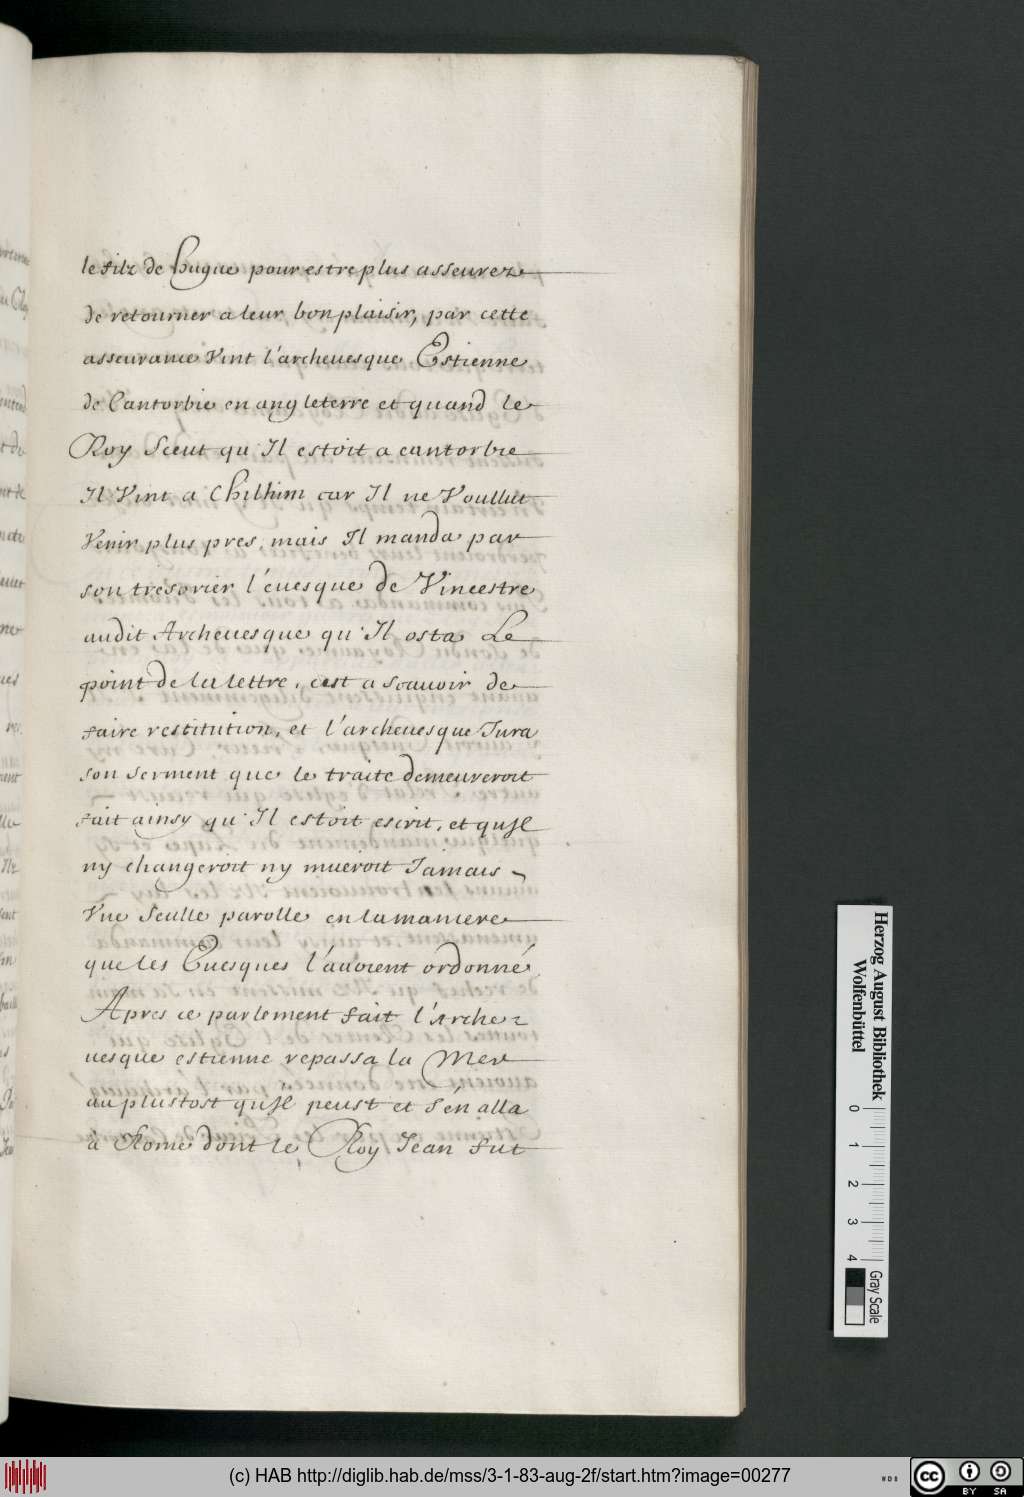 le filz de hugue pour estre plus asseurez
de retourner a leur bon plaisir, par cette
asseurance Vint l'archeuesque Estienne
de Cantorbie en angleterre et quand le
Roy Sceut qu'Il estoit a cantorbie
Il Vint a Chilhim car Il ne Voullut
Venir plus pres, mais Il manda par
son tresorier l'euesque de Vincestre
audit Archeuesque qu'Il osta Le
point de la lettre, cest a scauoir de
faire restitution, et l'archeuesque Jura
son serment que le traite demeureroit
fait ainsy qu'Il estoit escrit, et qu'Il
ny changeroit ny mueroit Jamais
Vne Seulle parolle en la maniere
que les Euesques l'auoient ordonné
Apres ce parlement fait l'Arche=
uesque estienne repassa la Mer
au plustost qu'Il peust et s'en alla
à Rome dont le Roy Jean fut
Herzog August Bibliothek
Wolfenbüttel
0 1 2 3 4
Gray Scale
(c) HAB http://diglib.hab.de/mss/3-1-83-aug-2f/start.htm?image=00277
WDB
cc BY SA